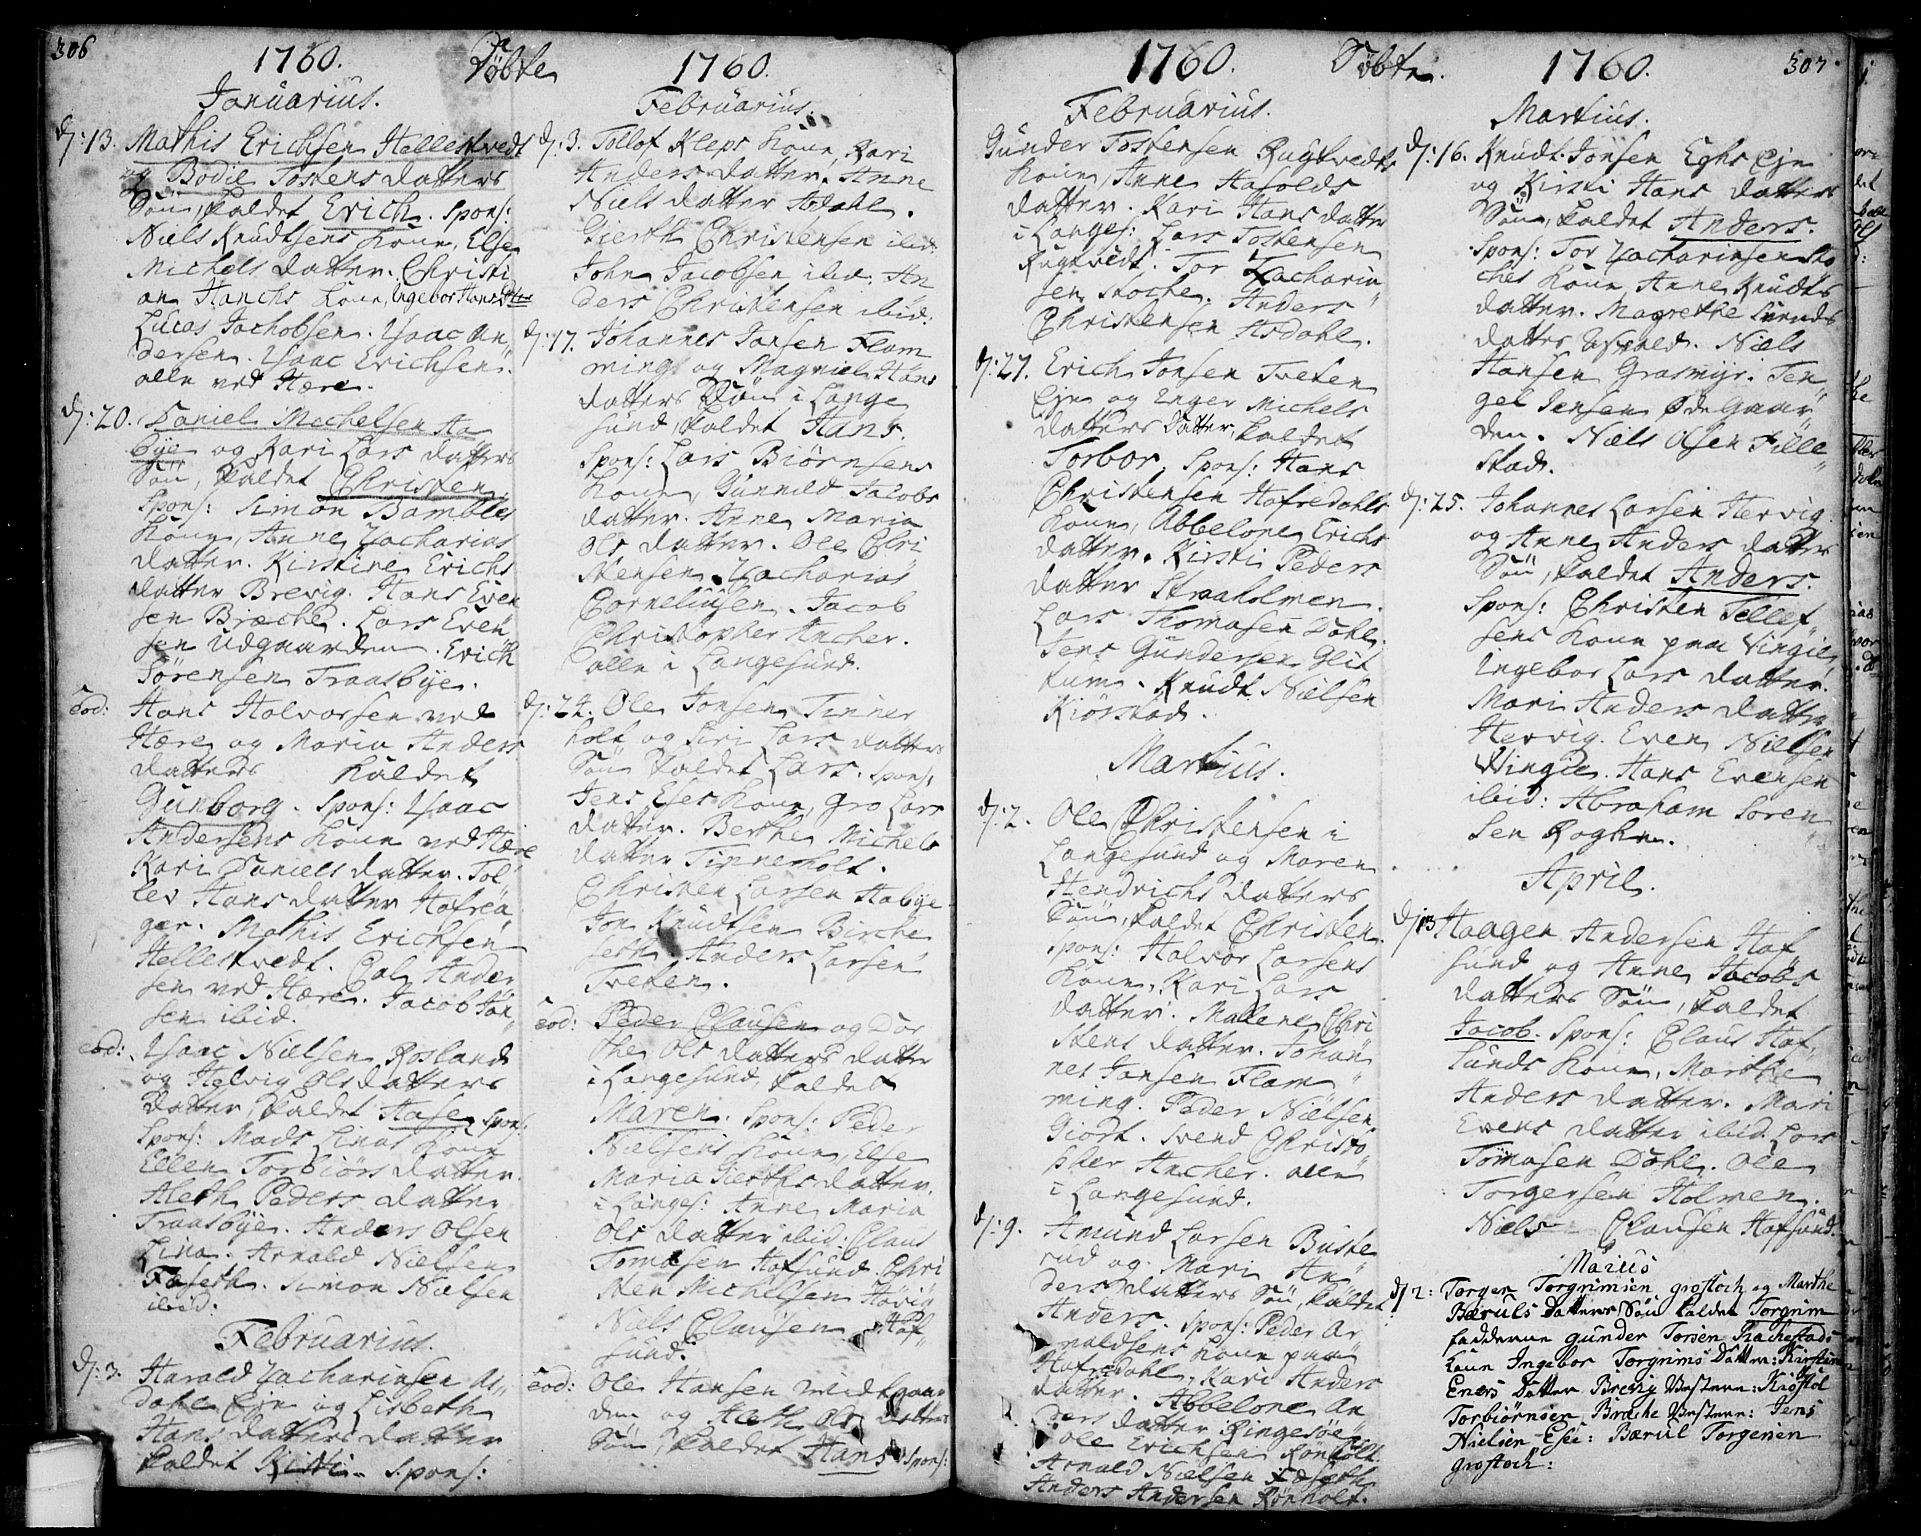 306
1760. Döbte 1760.
Januarius.
d: 13. Mathis Erichsen Hellestvedt
og Bodil Tostens datters
Sön, kaldet Erich. Spons:
Niels Knudtsens Kone, Else
Michels datter. Christi
an Hanchs Kone, Ingebor Hans Dtter
Lucas Jachobsen. Isaac An
dersen. Isaac Erichsen.
alle ved Hære.
d: 20. Daniel Mechelsen Ha
bye og Kari Lars datters
Sön, kaldet Christen.
Spons: Simon Bambles
Kone, Anne Zacharias
datter. Kirstine Erichs
datter Brevig. Hans Even
sen Bræche. Lars Even
sen Udgaarden. Erich
Sörensen Traasbye.
eod: Hans Halvorsen ved
Hære og Maria Anders
datters kaldet
Gunborg. Spons: Isaac
Andersens Kone ved Hære
Kari Daniels datter. Tol
lev Hans datter Hafsea
ger. Mathis Erichsen
Hellestvedt. Pal Ander
sen ved Hære. Jacob Jon
sen ibid.
eod: Isaac Nielsen Rosland
og Helvig Ols datters
datter, kaldet Aase. Spons:
Spons: Mads Linas Kone
Ellen Torbiörs datter.
Aleth Peders datter
Traasbye. Anders Olsen
Lina. Arnold Nielsen
Faseth. Simon Nielsen
ibid.
Februarius.
d: 3. Harald Zachariasen As
dahl Eje og Lisbeth
Hans datters datter
kaldet Kirsti. Spons:
Februarius.
d: 3. Tollof Kleps Kone, Kari
Anders datter. Anne
Niels datter Asdahl.
Gierth Christensen ibid.
John Jacobsen ibid. An
ders Christensen ibid.
d: 17. Johannes Jonsen Flam
ming og Magniel Hans
datters Sön i Lange
sund, kaldet Hans.
Spons: Lars Biörnsens
Kone, Gunnild Jacobs
datter. Anne Maria
Ols datter. Ole Chri
stensen. Zacharias
Corneliusen. Jacob
Christopher Ancher.
alle i Langesund.
d: 24. Ole Jonsen Tinner
holt og Siri Lars datters
Sön kaldet Lars. Spons:
Jens Eses Kone, Gro Lars
datter. Berthe Michels
datter Tinnerholt.
Christen Larsen Habye
Jon Knudtsen Birche
seth. Anders Larsen
Tveten.
eod: Peder Clausen og Dor
the Ols datters datter
i Langesund, kaldet
Maren. Spons: Peder
Nielsens Kone, Else
Maria Gierths datter.
i Langes: Anne Maria
Ols datter ibid: Claus
Tomasen Hafsund. Chri
sten Michelsen Hövig
Niels Clausen Haf
sund.
eod: Ole Hansen Midtgaar
den og Aleth Ols datters
Sön, kaldet Hans. Spons:
1760. Döbte. 1760. 307
Februarius.
Gunder Tostensen Rugtvedts
Kone, Anne Hafolds
datter. Kari Hans datter
i Langes: Lars Tostensen
Rugtvedt. Tor Zacharia
sen Stoche. Anders
Christensen Asdahl.
d: 27. Erich Jonsen Tveten
Eje og Enger Michels
datters Datter, kaldet
Torbor, Spons: Hans
Christensen Hafredahls
Kone, Abbelone Erichs
datter. Kirsti Peders
datter Straaholmen.
Lars Thomasen Dahl.
Jens Gundersen Glit
tum. Knudt Nielsen
Kiörstad.
Martius.
d: 2. Ole Christensen i
Langesund og Maren
Hendrichs datters
Sön, kaldet Christen.
Spons: Halvor Larsens
Kone, Kari Lars
datter. Malene Chri
stens datter. Johan
nes Jonsen Flam
ming. Peder Nielsen
Giort. Svend Christo
pher Ancher. alle
i Langesund.
d: 9. Amund Larsen Buste
rud og Mari An
ders datters Sön, kaldet
Anders. Spons: Peder Ar
noldsens Kone paa
Hafredahl, Kari Anders
datter. Abbelone An
ders datter Ringesöe
Ole Erichsen Rönholt.
Arnold Nielsen Faseth
Anders Andersen Rönholt.
Martius.
d: 16. Knudt Jonsen Eghs Eje
og Kirsti Hans datters
Sön, kaldet Anders.
Spons: Tor Zachariasen Sto
ches Kone Anne Knudts
datter. Magrethe Svends
datter. Niels
Hansen Grasmyr. Ten
gel Jensen Ödegaar
den. Niels Olsen Fille
stad.
d: 25. Johannes Larsen Hervig
og Anne Anders datters
Sön, kaldet Anders.
Spons: Christen Tellef
sens Kone paa Vingie,
Ingebor Lars datter.
Mari Anders datter
Hervig. Even Nielsen
Vingie. Hans Evensen
ibid: Abraham Sören
sen Roghn.
April.
d: 13 Haagen Andersen Haf
sund og Anne Jacobs
datters Sön, kaldet
Jacob. Spons: Claus Haf
sunds Kone, Marthe
Anders datter. Mari
Evens datter ibid. Lars
Tomasen Dahl. Ole
Torgersen Holmen.
Niels Clausen Hafsund.
Maius
d: 2: Torger Torgrimsen grostoch og Marthe
Bæruls Datters Sön kaldet Torgrim
fadderne gunder Torsen Rachestads
Kone Ingebor Torgrims Datter: Kirstine
Eners Datter Brevig Vestere: Kiöstol
Torbiörnsen Bræche Vestere: Jens
Nielsen Ese: Bærul Torgersen
grostoch: